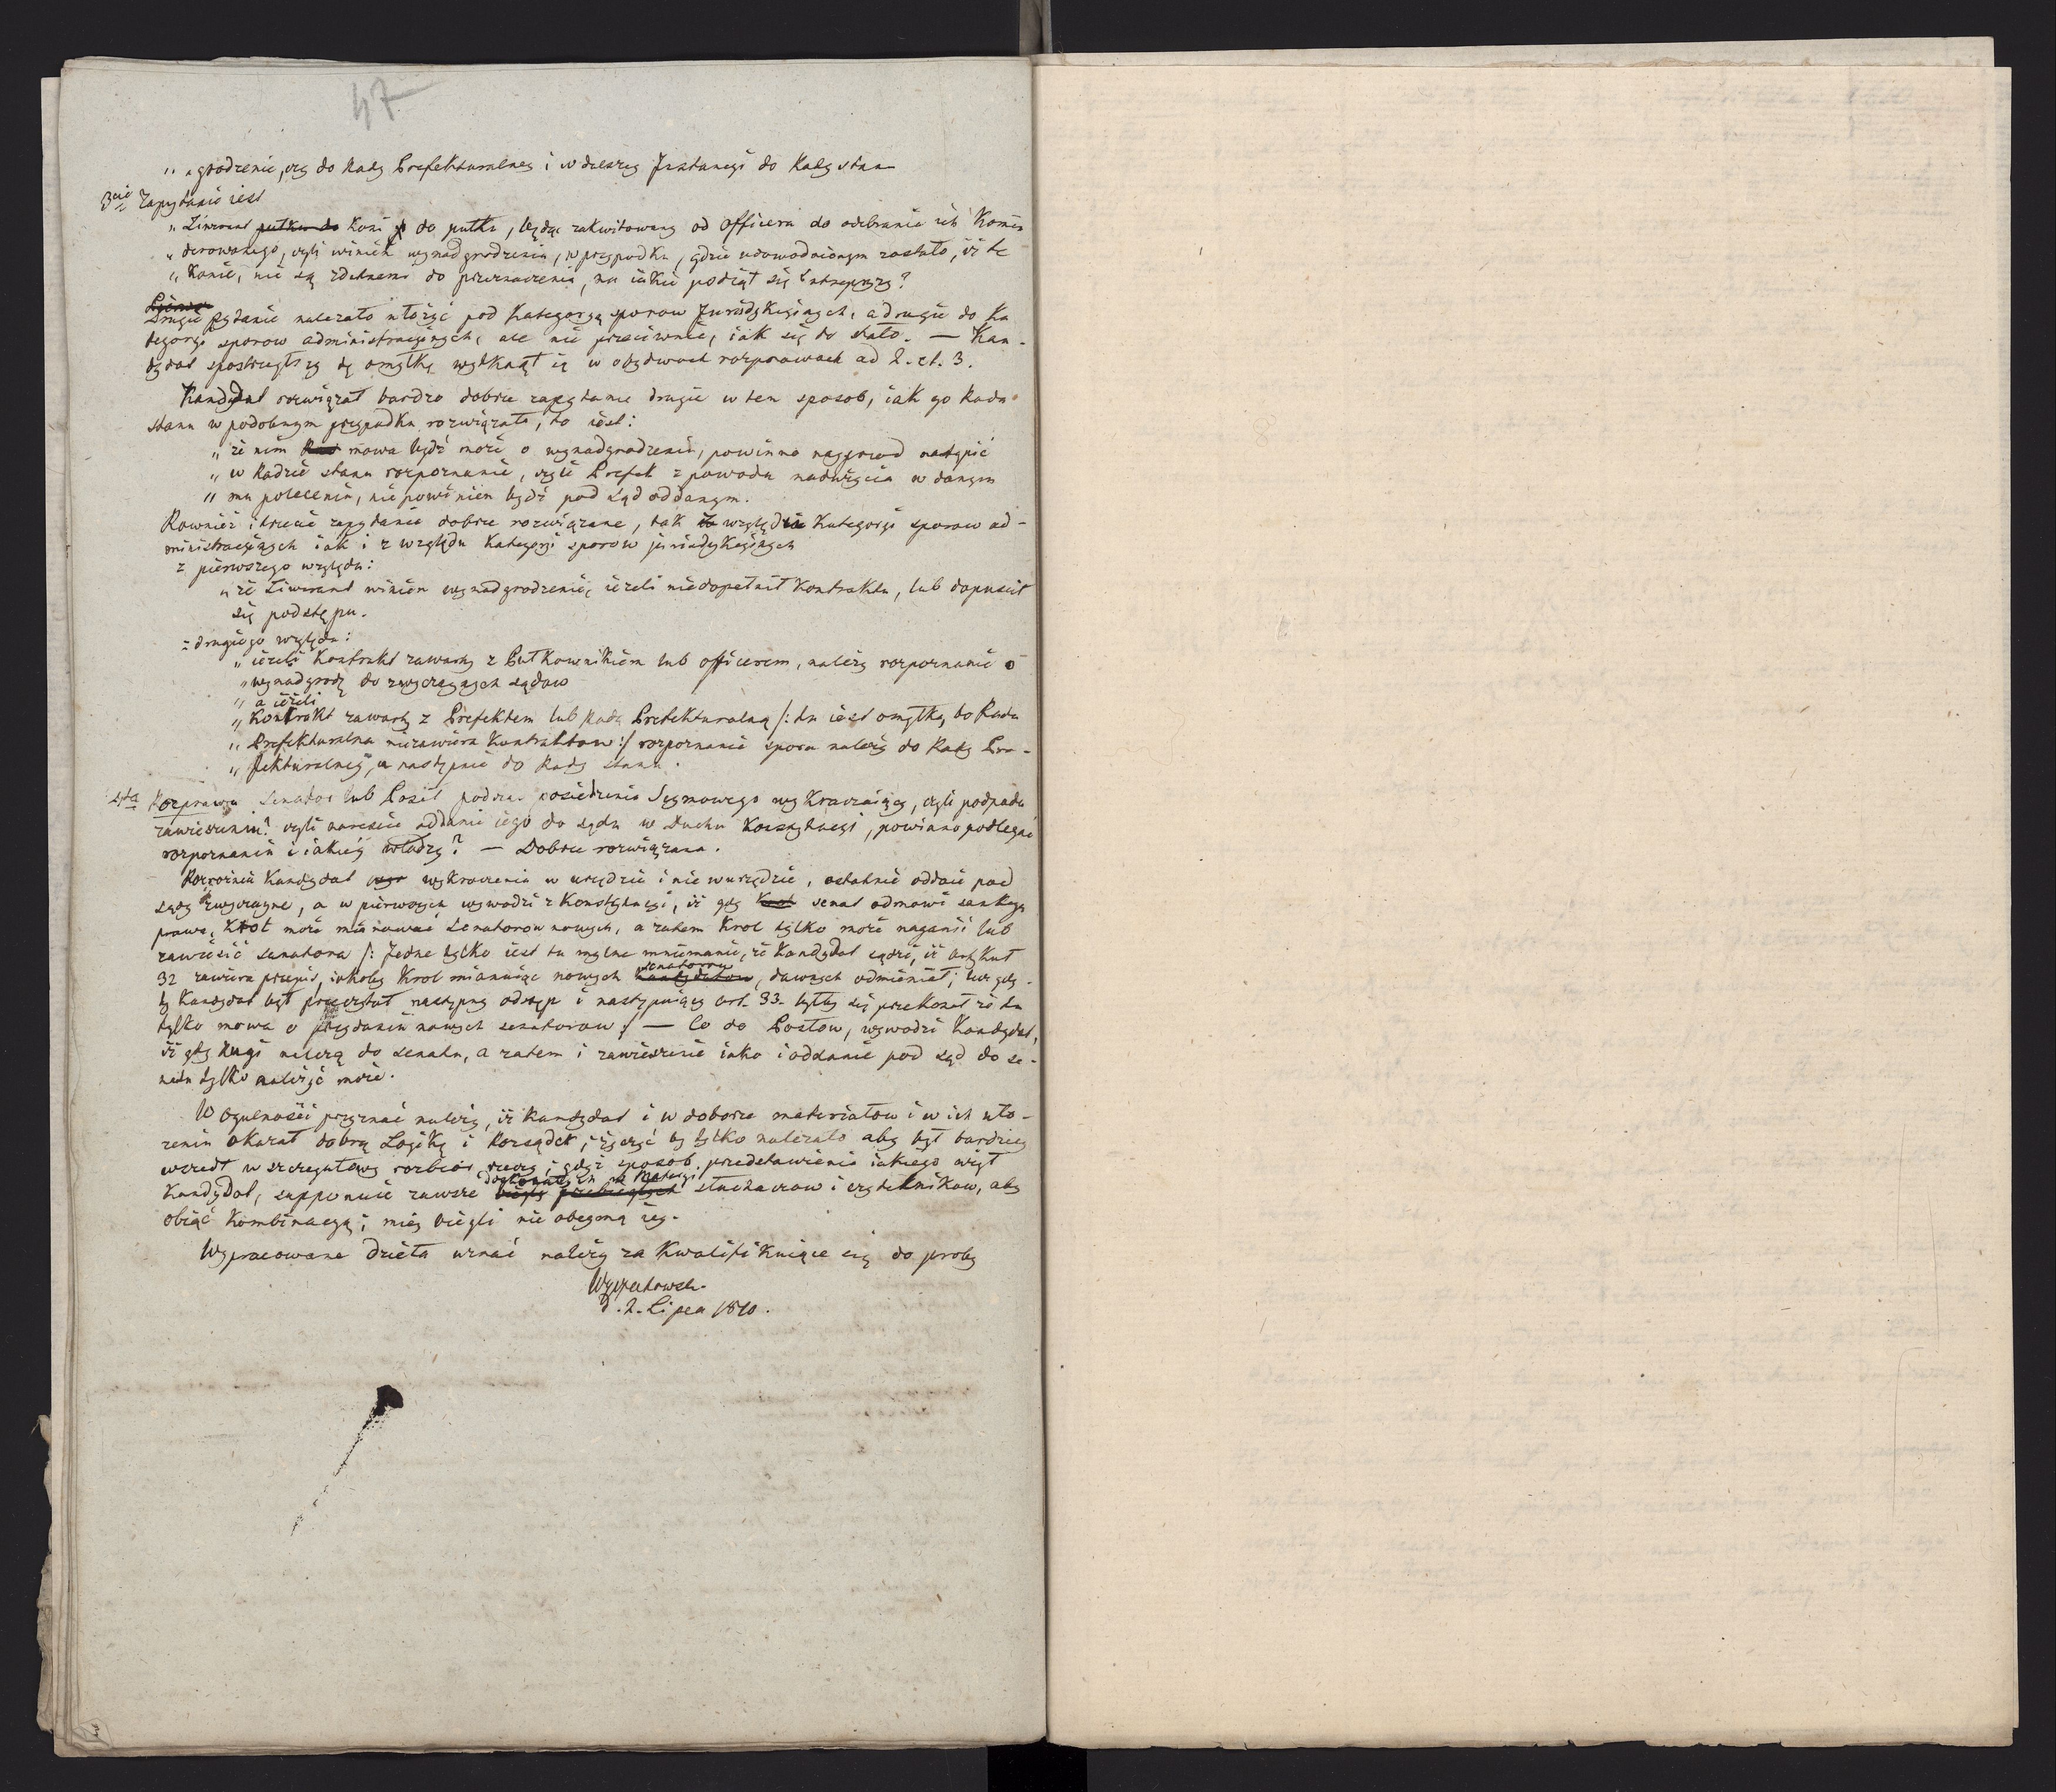 47
„ „ grodzenie, czy do Rady Prefekturalney i w dalszey Jnstancyi do Rady stanu
3cie Zapytanie iest
„ Liwerant pułku do koni do pułku, będąc zakwitowany od Officera do odebrania ich Komen
„ derowanego, czyli winien wynadgrodzenia, w przypadku, gdzie udowodnionym zostało, iż te
„ Konie, nie są zdatnemi do przeznaczenia, na iakie podiął się Entrepryzy?
Drugie pytanie należało ułożyć pod kategoryą sporow Jurisdykcyinych, a drugie do Ka
tegoryi sporow administracyinych, ale nie przeciwnie, iak się to stało. — Kan-
dydat spostrzegłszy tę omyłkę wytknął ią w obydwoch rozprawach ad 2. et. 3.
Kandydat rozwiązał bardzo dobrze zapytanie drugie w ten sposob, iak go Rada
stanu w podobnym przypadku rozwiązała, to iest:
„ że nim mowa bydź może o wynadgrodzeniu, powinno nayprzod nastąpić
„ w Radzie stanu rozpoznanie, czyli Prefekt z powodu nadużycia w danym
„ mu poleceniu, nie powinien bydź pod sąd oddanym.
Rownież i trzecie zapytanie dobrze rozwiązane, tak względem Kategoryi sporow ad-
ministracyinych iak i z względu Kategoryi sporow jurisdykcyinych
z pierwszego względu:
„ że Liwerant winien wynadgrodzenie, ieżeli niedopełnił Kontraktu, lub dopuścił
się podstępu.
z drugiego względu:
„ ieżeli Kontrakt zawarty z Pułkownikiem lub officerem, należy rozpoznanie o
„ wynadgrodę do zwyczaynych sądow
„ a ieżeli
„ Kontrakt zawarty z Prefektem lub Radą Prefekturalną /: tu iest omyłka, bo Rada
„ Prefekturalna niezawiera Kontraktow :/ rozpoznanie sporu należy do Rady Pre-
„ fekturalney, a następnie do Rady stanu.
4ta Rozprawa Senator lub Poseł podczas posiedzenia Seymowego wykraczaiący, czyli podpada
zawieszeniu? czyli nareszcie oddanie iego do sądu w duchu Konstytucyi, powinno podlegać
rozpoznaniu i iakiey władzy? — Dobrze rozwiązana.
Rozrożnia Kandydat wykroczenia w urzędzie i nie w urzędzie, ostatnie oddaie pod
sądy zwyczayne, a w pierwszych wywodzi z Konstytucyi, iż gdy senat odmowi sankcyi
prawa, Krol może mianować Senatorow nowych, a zatem Krol tylko może naganić lub
zawiesić senatora /: Jedne tylko iest tu mylne mniemanie, że Kandydat sądzi, iż artykuł
32 zawiera przepis, iakoby Krol mianuiąc nowych senatorow kandydatow, dawnych odmieniał; lecz gdy-
by Kandydat był przeczytał następny odstęp i następuiący art. 33. byłby się przekonał że tu
tylko mowa o przydaniu nowych senatorow :/ — Co do Posłow, wywodzi Kandydat,
iż gdy należą do senatu, a zatem i zawieszenie iako i oddanie pod sąd do se-
natu tylko należyć może.
W ogulności przyznać należy, iż Kandydat i w doborze materiałow i w ich uło-
żeniu okazał dobrą Logikę i Rozsądek; życzyć by tylko należało aby był bardziey
wszedł w szczegułowy rozbior rzeczy; gdyż sposob przedstawienia iakiego użył
Kandydat, supponuie zawsze słuchaczow i czytelnikow, aby
obiąć Kombinacyą; miey biegli nie obeymą iey.
Wypracowane dzieła uznać należy za Kwalifikuiące się do proby
Wyczechowski
d. 2. Lipca 1810.